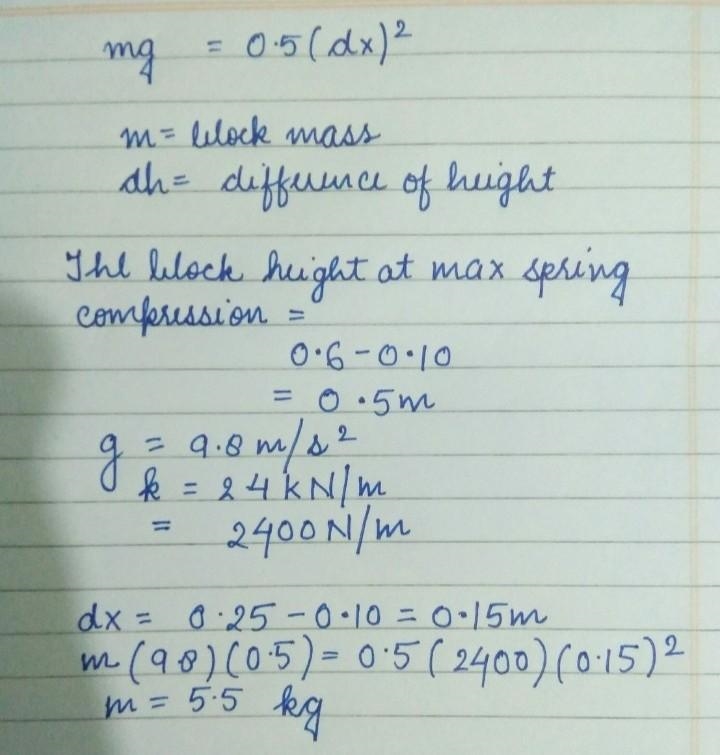 mg = 0.5(dx)²
m = block mass
dh = difference of height
The block height at max spring
compression =
0.6 - 0.10
= 0.5m
g = 9.8 m/s²
k = 24 kN/m
= 2400 N/m
dx = 0.25 - 0.10 = 0.15m
m (98)(0.5) = 0.5(2400)(0.15)²
m = 5.5 kg